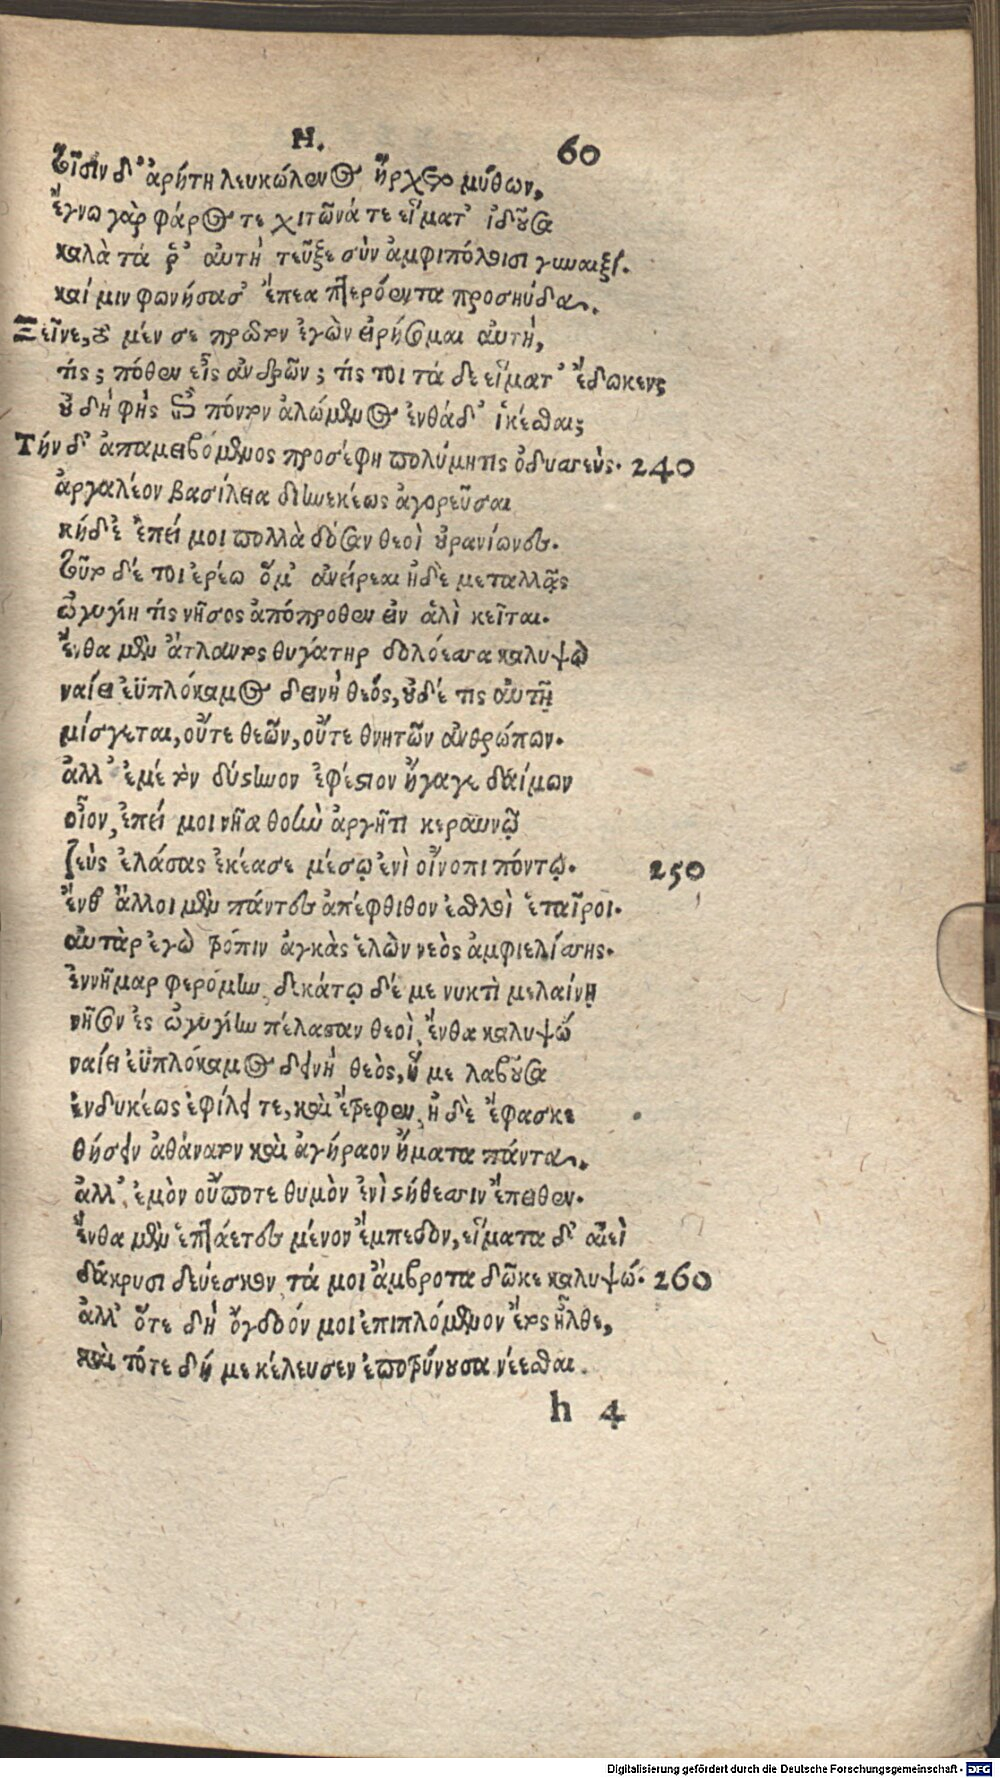 Η. 60
τοῖσιν δ' ἀρήτη λευκώλενος ἤρχετο μύθων,
ἔγνω γὰρ φάρος τε χιτῶνά τε εἵματ' ἰδοῦσα
καλὰ τά ῥ' αὐτὴ τεῦξε σὺν ἀμφιπόλοισι γυναιξί.
καί μιν φωνήσασ' ἔπεα πτερόεντα προσηύδα.
Ξεῖνε, τὸ μέν σε πρῶτον ἐγὼν εἰρήσομαι αὐτή,
τίς; πόθεν εἶς ἀνδρῶν; τίς τοι τά δε εἵματ' ἔδωκεν;
οὐ δὴ φὴς ἐπὶ πόντον ἀλώμενος ἐνθάδ' ἱκέσθαι;
Τὴν δ' ἀπαμειβόμενος προσέφη πολύμητις ὀδυσσεύς. 240
ἀργαλέον βασίλεια διηνεκέως ἀγορεῦσαι
κήδε' ἐπεί μοι πολλὰ δόσαν θεοὶ οὐρανίωνες.
τοῦτο δέ τοι ἐρέω ὅμ' ἀνείρεαι ἠδὲ μεταλλᾷς
ὠγυγίη τίς νῆσος ἀπόπροθεν εἰν ἁλὶ κεῖται.
ἔνθα μὲν ἄτλαντος θυγάτηρ δολόεσσα καλυψὼ
ναίει ἐϋπλόκαμος δεινὴ θεός, οὐδέ τις αὐτῇ
μίσγεται, οὔτε θεῶν, οὔτε θνητῶν ἀνθρώπων.
ἀλλ' ἐμὲ τὸν δύστηνον ἐφέστιον ἤγαγε δαίμων
οἶον, ἐπεί μοι νῆα θοὴν ἀργῆτι κεραυνῷ
ζεὺς ἐλάσας ἐκέασε μέσῳ ἐνὶ οἴνοπι πόντῳ. 250
ἔνθ' ἄλλοι μὲν πάντες ἀπέφθιθον ἐσθλοὶ ἑταῖροι.
αὐτὰρ ἐγὼ τρόπιν ἀγκὰς ἑλὼν νεὸς ἀμφιελίσσης.
ἐννῆμαρ φερόμην, δεκάτῳ δέ με νυκτὶ μελαίνῃ
νῆσον ἐς ὠγυγίην πέλασαν θεοί, ἔνθα καλυψώ
ναίει ἐϋπλόκαμος δεινὴ θεὸς, ἥ με λαβοῦσα
ἐνδυκέως ἐφίλει τε, καὶ ἔτρεφεν, ἠ δὲ ἔφασκε
θήσειν ἀθάνατον καὶ ἀγήραον ἤματα πάντα.
ἀλλ' ἐμὸν οὔποτε θυμὸν ἐνὶ στήθεσσιν ἔπειθεν.
ἔνθα μὲν ἑπτάετες μένον ἔμπεδον, εἵματα δ' αἰεὶ
δάκρυσι δεύεσκον τά μοι ἄμβροτα δῶκε καλυψώ. 260
ἀλλ' ὅτε δὴ ὄγδοόν μοι ἐπιπλόμενον ἔτος ἦλθε,
καὶ τότε δή με κέλευσεν ἐποτρύνουσα νέεσθαι.
h 4
Digitalisierung gefördert durch die Deutsche Forschungsgemeinschaft - DFG